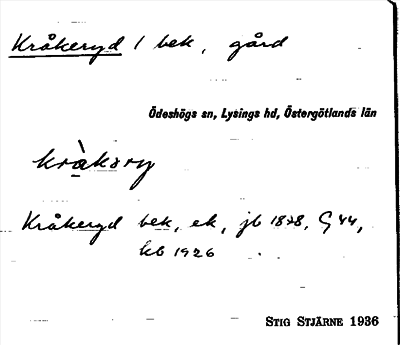 Kråkeryd 1 bek, gård
Ödeshögs sn, Lysings hd, Östergötlands län
kràkəry
Kråkeryd bek, ek, jb 1878, G 44,
kb 1926
STIG STJÄRNE 1936